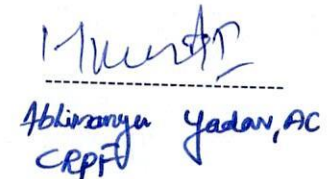 Abhimanyu Yadav, AC
CRPF